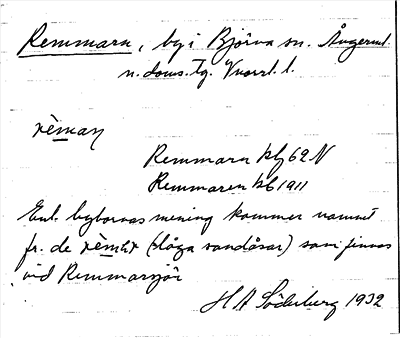 Remmarn, by i Björna sn. Ångerml.
n. doms. tg. Vnorrl. l.
rèman
Remmarn kb 62 N
Remmaren kb 1911
Enl. bybornas mening kommer namnet
fr. de (låga sandåsar) som finnas
vid Remmarsjön
H A Söderberg 1932